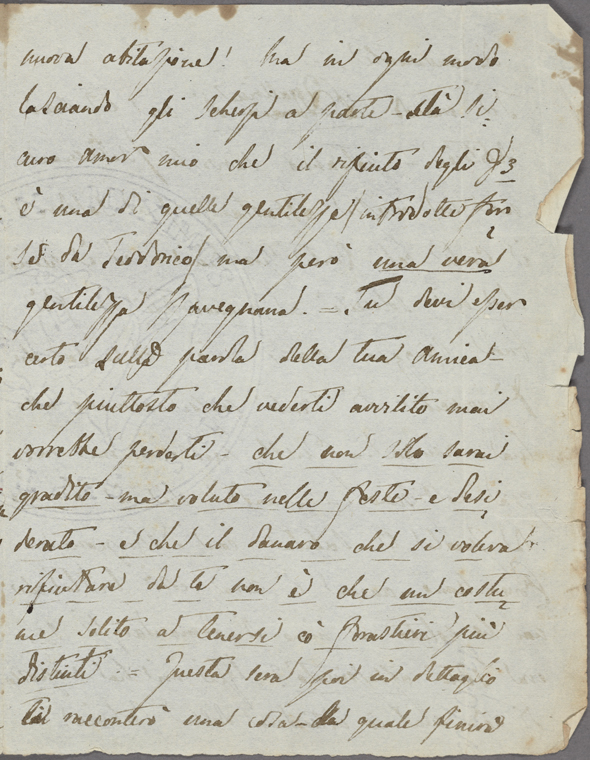 nuova abitazione! Ma in ogni modo
lasciando gli scherzi a parte - stà si=
curo Amor mio che il rifiuto degli 3
è una di quelle gentilezze (introdotte for
sè da Teodorico) ma però una vera
gentilezza Ravegnana. = Tu devi esser
certo sulla parola della tua Amica -
che piuttosto che vederti avvilito mai
vorrebbe perderti - che non solo sarai
gradito - ma voluto nelle feste - e desi
derato - e che il danaro che si voleva
rifiuttare da te non è che un costu=
me solito a tenersi co' forastieri più
distinti = Questa sera poi in dettaglio
ti racconterò una cosa - la quale finirà